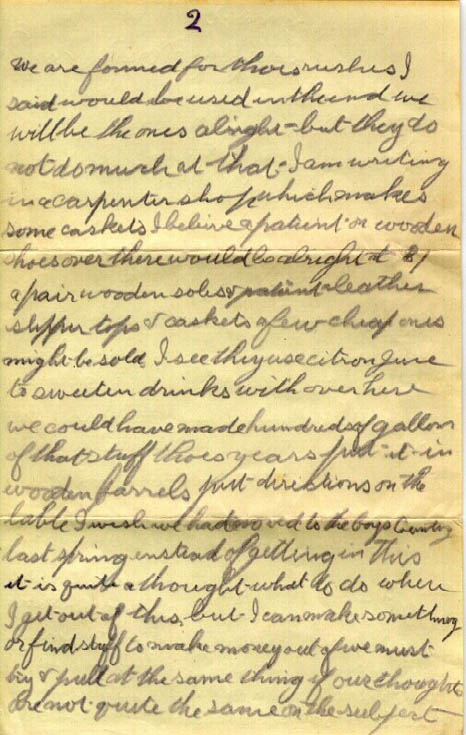 2
We are formed for thoes rushes I
said would be used in the end we
will be the ones alright - but they do
not do much at that - I am writing
in a carpenter shop which makes
some caskets I belive a patient or wooden
shoes over there would be alright at $1
a pair wooden soles & patient leather
slipper tops & caskets a few cheap ones
might be sold. I see they use citron juce
to sweeten drinks with over here
we could have made hundreds of gallons
of that stuff thoes years put it in
wooden barrels just directions on the
lable I wish we had moved to the boys Country
last spring enstead of getting in this
it is quite a thought what to do when
I get out of this, but I can make something
or find stuff to make money out of we must
buy & pull at the same thing if our thought
are not quite the same on the subject